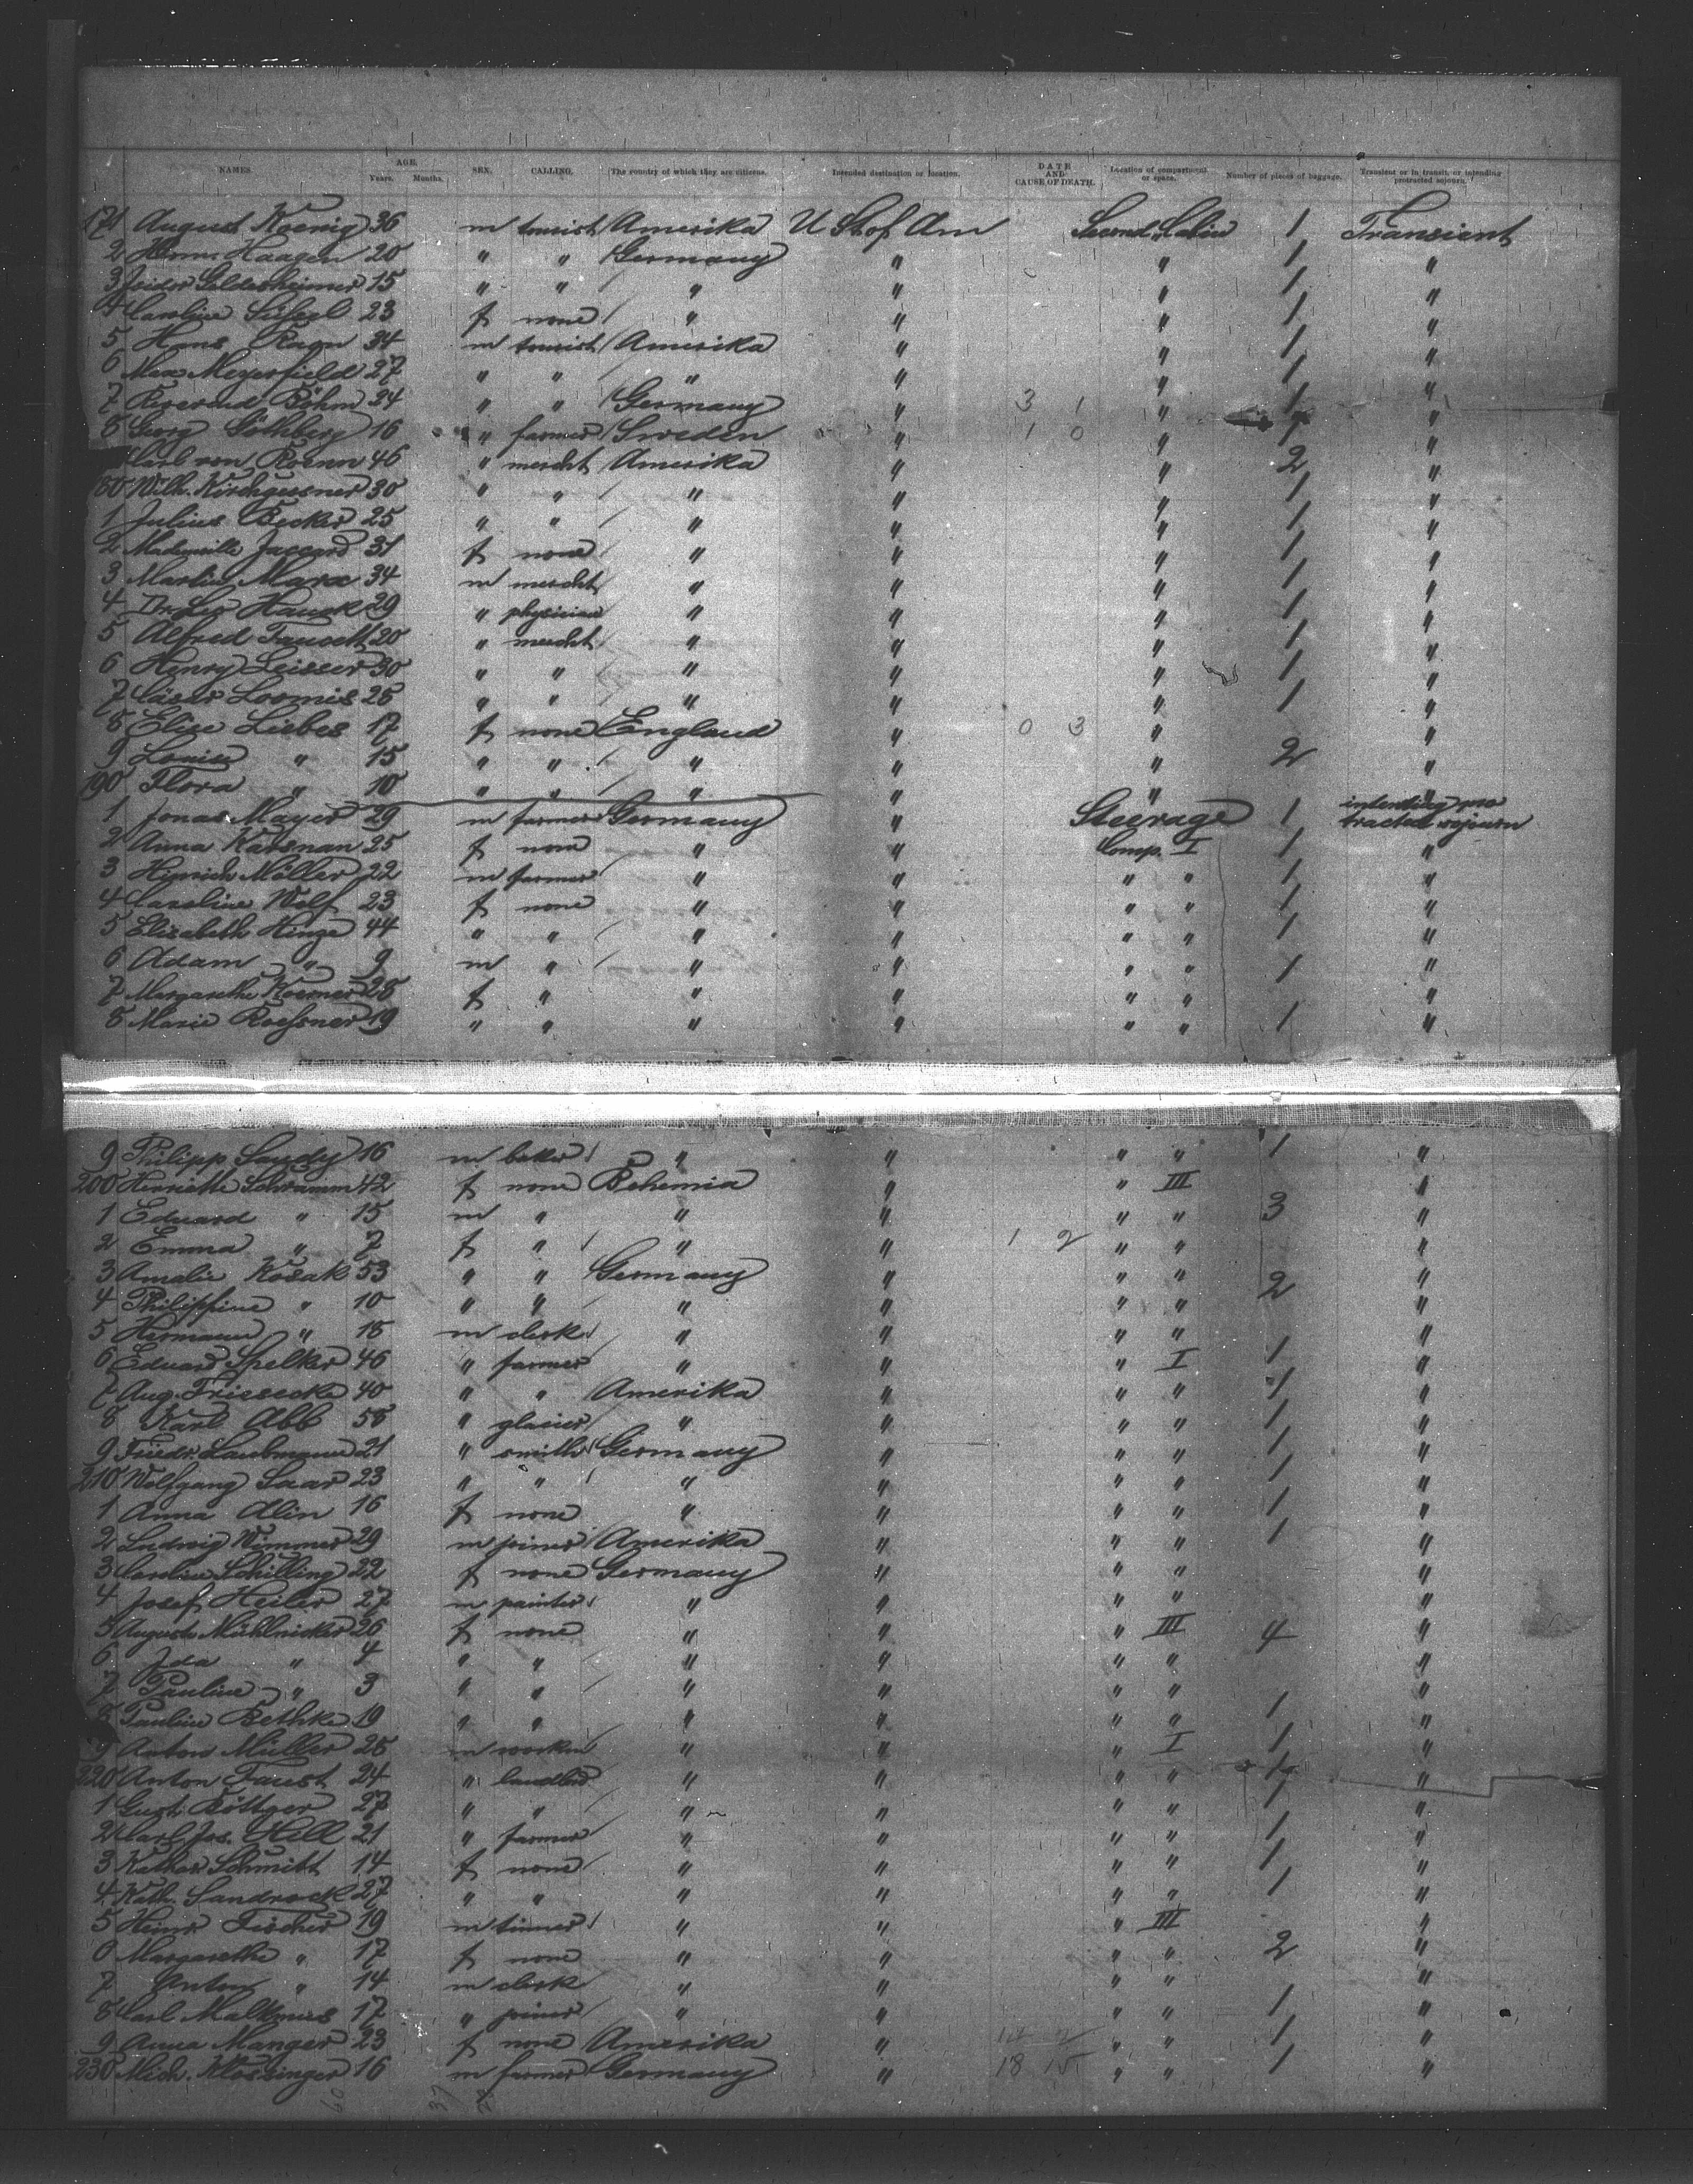 NAMES. AGE. Years. Months. SEX. CALLING. The country of which they are citizens. Intended destination or location. DATE AND CAUSE OF DEATH. Location of compartment or space. Number of pieces of baggage. Transient or in transit, or intending protracted sojourn.
171 August Koenig 36 m tourist Amerika U St of Am Second Cabin 1 Transient
2 Herm. Haagen 20 " " Germany " " 1 "
3 Isidor 15 " " " " " 1 "
4 Caroline 23 f none " " " 1 "
5 Hans 34 m tourist Amerika " " 1 "
6 Max Meyerfield 27 " " " " " 1 "
7 Böhm 24 " " Germany " 3 1 " 1 "
8 Georg Göthberg 16 " farmer Sweden " 1 0 " 1 "
Carl von Roenn 46 " mercht Amerika " " 2 "
180 Wilh. Kirchgessner 30 " " " " " 1 "
1 Julius Becker 25 " " " " " 1 "
2 Jaccard 31 f none " " " 1 "
3 Martin Marx 34 m mercht " " " 1 "
4 Dr. Leo Hauck 29 " physician " " " 1 "
5 Alfred Faucett 20 " mercht " " " 1 "
6 Henry Leisser 30 " " " " " 1 "
7 Cäsar Loomis 26 " " " " " 1 "
8 Elise Liebes 17 f none England " 0 3 " "
9 Louise " 15 " " " " " 2 "
190 Flora " 10 " " " " " "
1 Jonas Mayer 29 m farmer Germany " Steerage 1 intending protracted sojourn
2 Anna 25 f none " " Comp. I 1 "
3 Hinrich Möller 22 m farmer " " " " 1 "
4 Caroline Wolf 23 f none " " " " 1 "
5 Elisabeth Hinze 44 " " " " " " 1 "
6 Adam " 9 m " " " " " 1 "
7 Margarethe Koerner 28 f " " " " " "
8 Marie Roessner 19 " " " " " " 1 "
9 Philipp Sandy 16 m baker " " " " 1 "
200 Henriette Schramm 42 f none Bohemia " " III "
1 Eduard " 15 m " " " " " 3 "
2 Emma " 7 f " " " 1 2 " " "
3 Amalie Kosak 53 " " Germany " " " 2 "
4 Philippine " 10 " " " " " " "
5 Hermann " 18 m clerk " " " " "
6 Eduard Spelker 46 " farmer " " " I 1 "
7 Aug. Friesecke 40 " " Amerika " " " 1 "
8 Karl Abb 58 " glacier " " " " 1 "
9 Friedr. Laubmann 21 " smith Germany " " " 1 "
210 Wolfgang Saar 23 " " " " " " 1 "
1 Anna Alin 16 f none " " " " 1 "
2 Ludwig Wimmer 29 m joiner Amerika " " " 1 "
3 Caroline Schilling 22 f none Germany " " " "
4 Josef Heiler 27 m painter " " " " "
5 Auguste Mühlnickel 26 f none " " " III 4 "
6 Ida " 4 " " " " " " "
7 Pauline " 3 " " " " " " "
8 Pauline Bethke 19 " " " " " " 1 "
9 Anton Müller 28 m " " " I 1 "
220 Anton Faust 24 " " " " " 1 "
1 Gust. Böttger 27 " " " " " " 1 "
2 Carl Jos. Hill 21 " farmer " " " " 1 "
3 Kathar. Schmitt 14 f none " " " " 1 "
4 Kath. Sandrock 27 " " " " " " 1 "
5 Heinr. Fischer 19 m tinner " " " III "
6 Margarethe " 17 f none " " " " 2 "
7 Anton " 14 m clerk " " " " "
8 Carl Malkmus 17 " joiner " " " " 1 "
9 Anna Manger 23 f none Amerika " " " 1 "
230 Mich. Klossinger 16 m farmer Germany " 18 15 " " 1 "